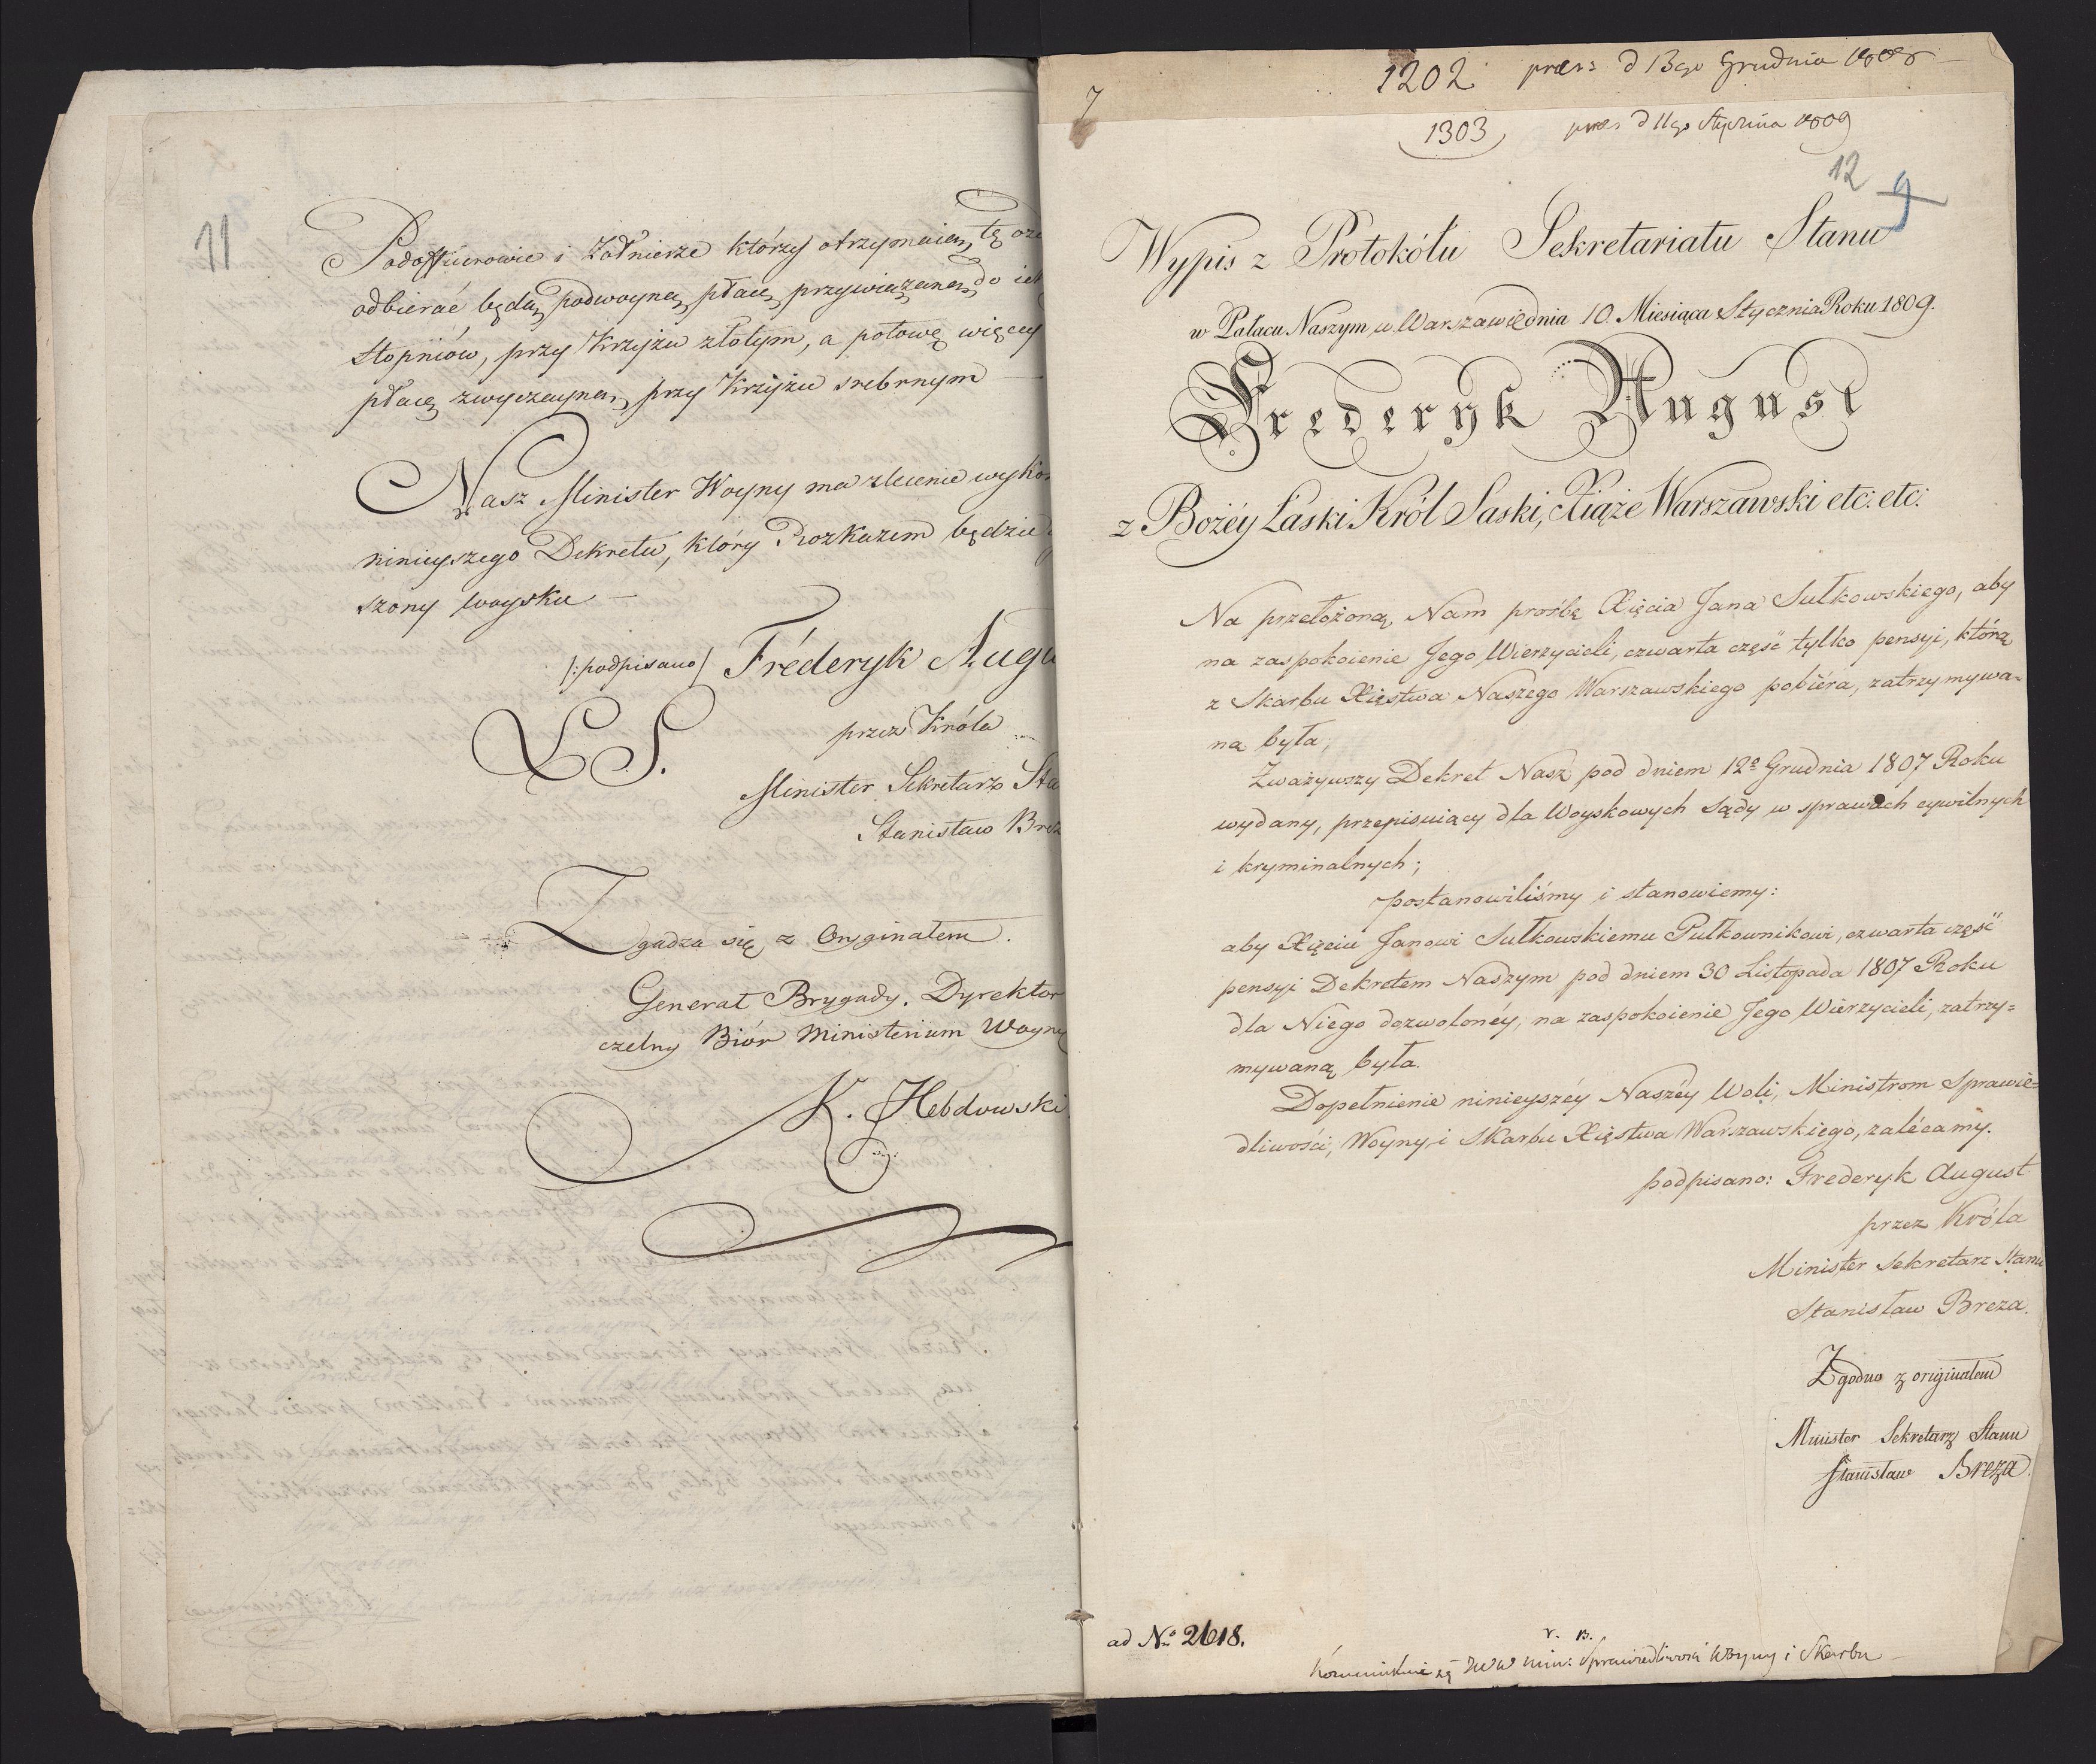 11
Podofficerowie i Żołnierze którzy otrzymaią tę
odbierać będą podwoyną płacę przywiązaną do ich
stopniów, przy Krzyżu złotym, a połowę więcey
płacę zwyczayną, przy Krzyżu srebrnym
Nasz Minister Woyny ma zlecenie
ninieyszego Dekretu, który Rozkazem będzie
szony woysku
/:podpisano/ Fréderyk Augu
L.S.
przez Króla
Minister Sekretarz Sta
Stanisław Brez
Zgadza się z Oryginałem.
Generał Brygady, Dyrektor
czelny Biór Ministerium Woyny
K. Hebdowski
7
1202 præs: d 13go Grudnia 1808
1303 præs d 11go Stycznia 1809
12 9
Wypis z Protokółu Sekretariatu Stanu
w Pałacu Naszym w Warszawie dnia 10. Miesiąca Stycznia Roku 1809.
Frederyk August
z Bożéy Łaski Król Saski, Xiąże Warszawski etc: etc:
Na przełożoną Nam prośbę Xięcia Jana Sułkowskiego, aby
na zaspokoienie Jego Wierzycieli, czwarta część tylko pensyi, którą
z Skarbu Xięstwa Naszego Warszawskiego pobiéra, zatrzymywa=
na była;
Zważywszy Dekret Nasz pod dniem 12º Grudnia 1807 Roku
wydany, przepisuiący dla Woyskowych Sądy w sprawach cywilnych
i kryminalnych;
postanowiliśmy i stanowiemy:
aby Xięciu Janowi Sułkowskiemu Pułkownikowi, czwarta część
pensyi Dekretem Naszym pod dniem 30 Listopada 1807 Roku
dla Niego dozwoloney, na zaspokoienie Jego Wierzycieli, zatrzy=
mywaną była.
Dopełnienie ninieyszéy Naszéy Woli, Ministrom Sprawie=
dliwości, Woyny, i Skarbu Xięstwa Warszawskiego, zalécamy.
podpisano: Frederyk August
przez Króla
Minister Sekretarz Stanu
Stanisław Breza.
Zgodno z originałem
Minister Sekretarz Stanu
Stanisław Breza.
ad Nº 2618.
v. B.
min: Sprawiedliwości Woyny i Skarbu